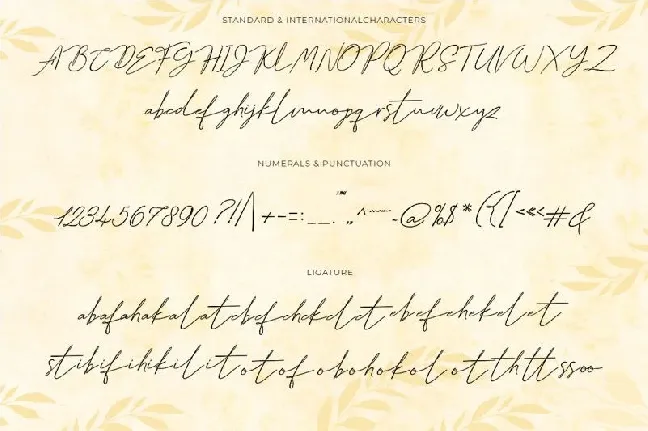 STANDARD & INTERNATIONALCHARACTERS
ABCDEFGHIJKLMNOPQRSTUVWXYZ
abcdefghijklmnopqrstuvwxyz
NUMERALS & PUNCTUATION
1234567890 ?!/| +-=:__. "",, ^~-@%$*({[<<<#&
LIGATURE
abafahakalatcbcfchckclctebefehekelet
stibifihikilitotofobohokolotthttssoo